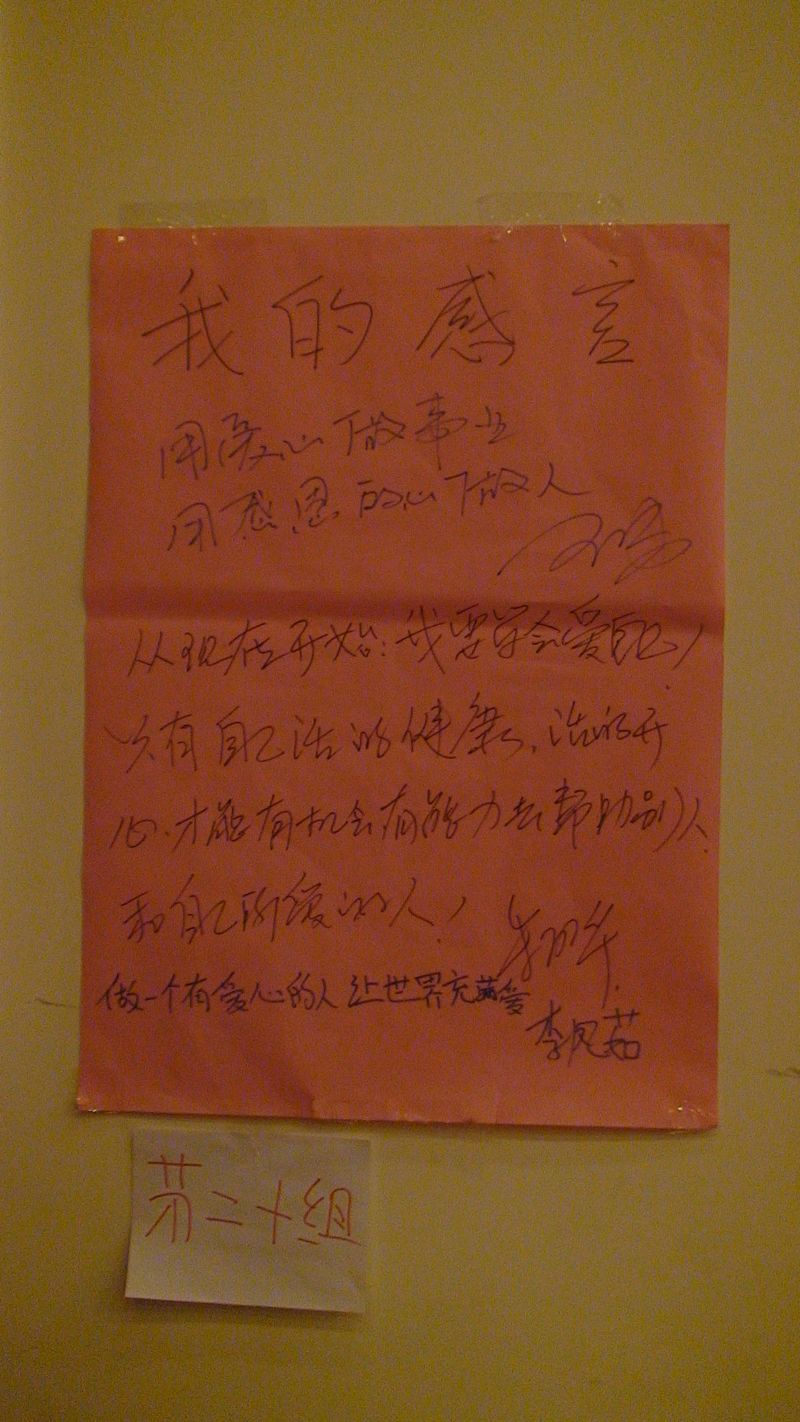 我的感言
用爱心做事业
用感恩的心做人
从现在开始：我要学会爱自己！
只有自己活的健康、活的开
心、才能有机会有能力去帮助别人、
和自己所爱的人！
做一个有爱心的人让世界充满爱
李凤茹
第二十组